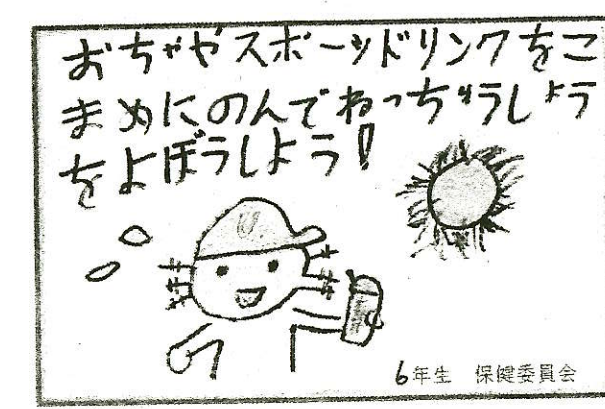 おちゃやスポーツドリンクをこ
まめにのんでねっちゅうしょう
をよぼうしよう!
6年生 保健委員会